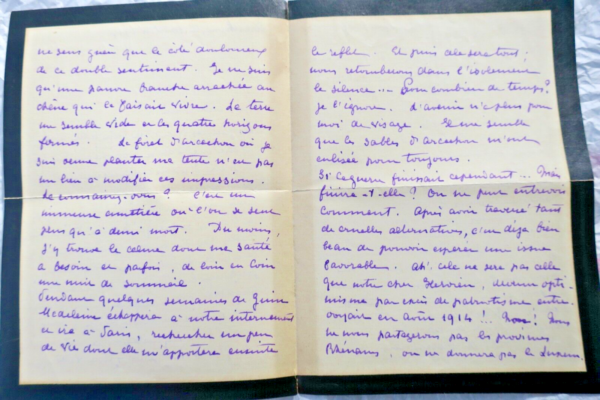 ne sens guère que le côté douloureux
de ce double sentiment. Je ne suis
qu'une pauvre branche arrachée au
chêne qui la faisait vivre. La terre
me semble vide et les quatre horizons
fermés. La forêt d'arcachon où je
suis venue planter ma tente n'est pas
un lieu à modifier ces impressions.
La connaissez-vous ? C'est un
immense cimetière où l'on se sent
plus qu'à demi mort. Du moins,
j'y trouve le calme dont ma santé
a besoin et parfois, de loin en loin
une nuit de sommeil.
Pendant quelques semaines de juin
Madeleine échappera à notre internement
et ira à Paris, rechercher un peu
de vie dont elle m'apportera ensuite
le reflet. Et puis ce sera tout ;
nous retomberons dans l'isolement
le silence... Pour combien de temps ?
je l'ignore. L'avenir n'a plus pour
moi de visage. Il me semble
que les sables d'arcachon m'ont
enlisée pour toujours.
Si la guerre finissait cependant... Mais
finira-t-elle ? On ne peut entrevoir
comment. Après avoir traversé tant
de cruelles alternatives, c'est déjà bien
beau de pouvoir espérer une issue
favorable. Ah! cela ne sera pas celle
que notre cher Hervieu, devenu opti-
miste par excès de patriotisme entre-
voyait en août 1914 !! Non ! Nous
ne nous partagerons pas les provinces
Rhénanes, on ne donnera pas le Luxem-